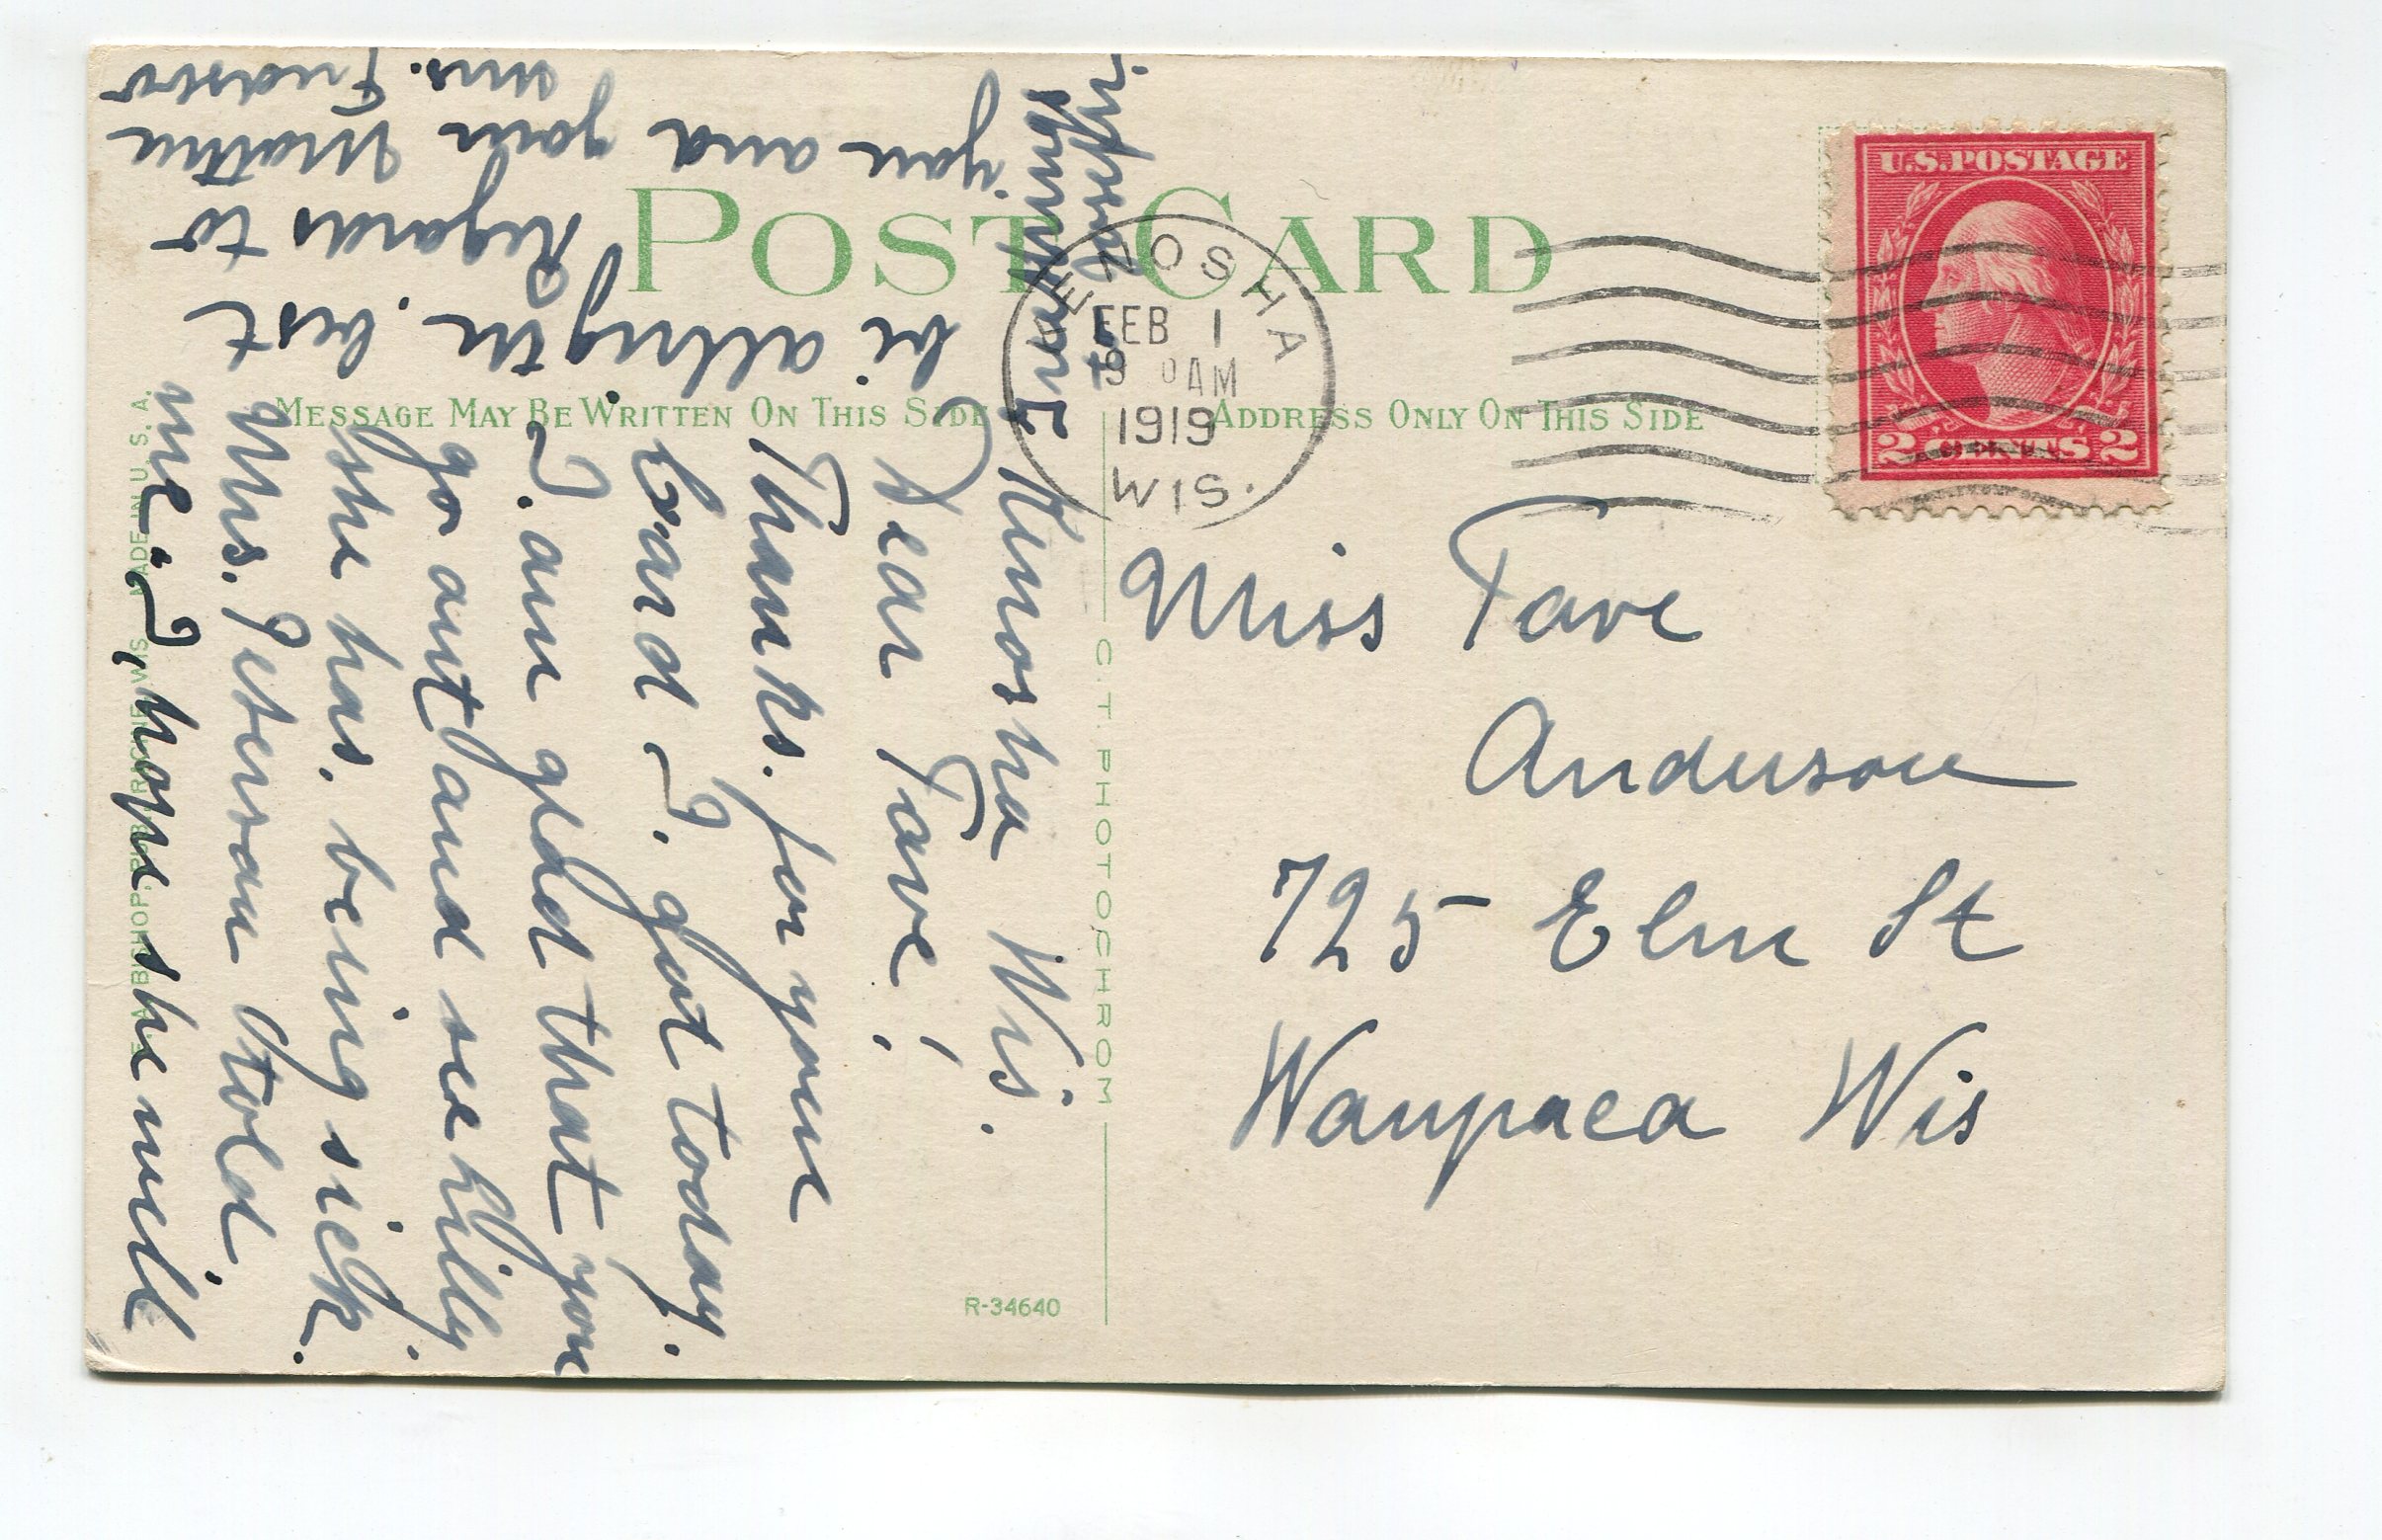 POST CARD
MESSAGE MAY BE WRITTEN ON THIS SIDE
ADDRESS ONLY ON THIS SIDE
U.S. POSTAGE
2 CENTS 2
KENOSHA
FEB 1
AM
1919
WIS.
Kenosha Wis.
Dear Tave!
Thanks. for your
Card I. got today.
I. am glad that you
go out and see hilly.
she has. being sick.
Mrs. Peterson told.
me. I, hope she will
be. allrigth. the. best
Regards to
you and your Mother
Mrs.
Miss Tave
Anderson
725 Elm St
Waupaca Wis
C. T. PHOTOCHROM
R-34640
MADE IN U. S. A.